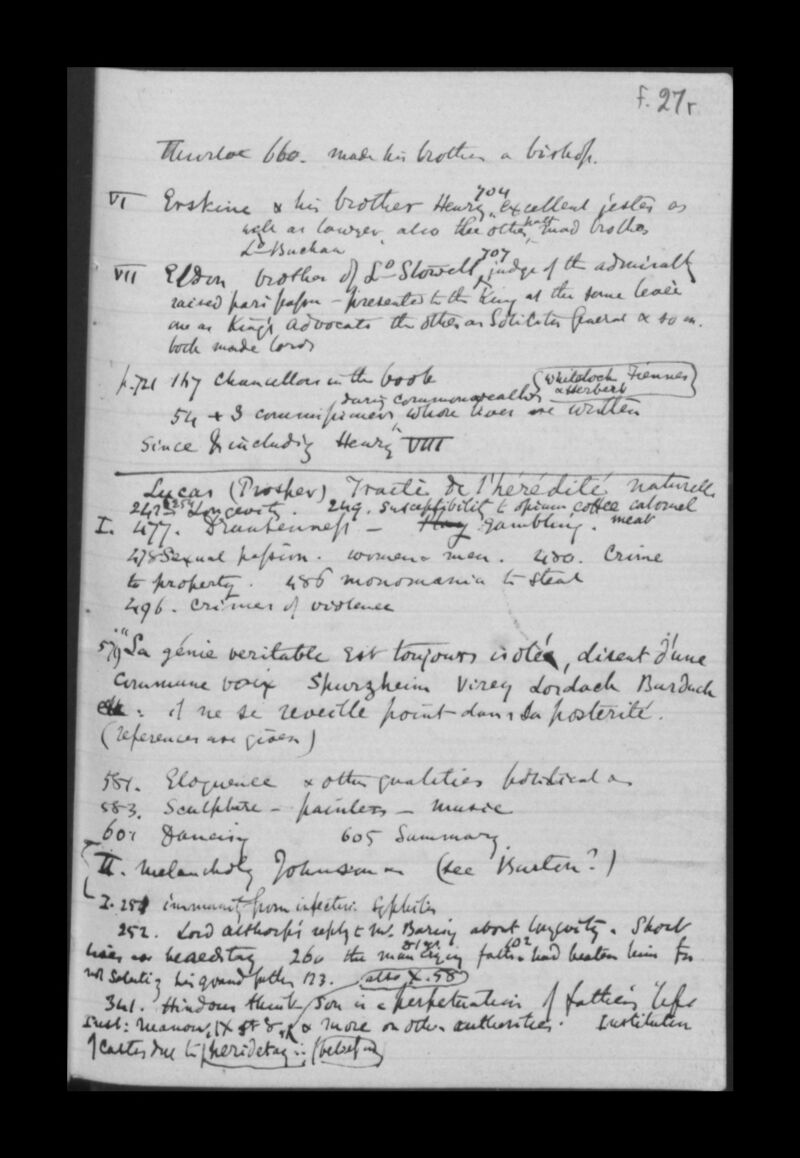 f. 27r
Thurloe 660. made his brother a bishop.
VI Erskine & his brother Henry 704 excellent jester as
well as lawyer, also the other half mad brother
Ld Buchan
VII Eldon brother of Ld Stowell 707 judge of the admiralty
raised pari passu - presented to the King at the same levée
one as King's Advocate the other as Solicitor General & so on.
both made lords
p. 721 167 Chancellors in the book
(Whitelock Fiennes & Herbert)
during commonwealth
54 + 3 commissioners whose lives are written
since & including Henry VIII
Lucas (Prosper) Traité de l'hérédité naturelle
Longevity. 249. susceptibility to opium coffee calomel
meat
I. 477. Drunkenness - gambling.
478 Sexual passion. women & men. 480. Crime
to property. 486 monomania to steal
496. Crimes of violence
579 "La génie veritable est toujours isolée, disent d'une
commune voix Spurzheim Virey Lordach Burdach
: il ne se reveille point dans sa posterité.
(references are given)
581. Eloquence & other qualities political
583. Sculpture - painters - music
601 Dancing 605 Summary
II. melancholy Johnson (see Burton?)
I. 251 immunity from infection Syphilis
252. Lord Althorp's reply to Mr. Baring about longevity. Short
lives are hereditary 260 the man crying father had beaten him for
not saluting his grandfather 123. also X. 58
341. Hindous think son is a perpetuation of father's life
Inst: Manou, IX & more on other authorities. Institution
of castes due to heridetay